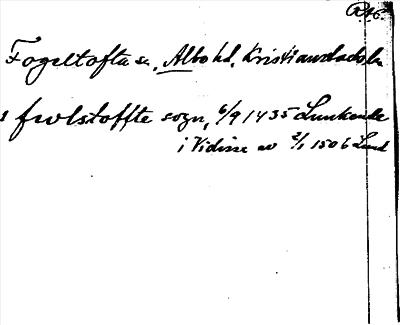 Rt6.
Fogeltofta sn, Albo hd, Kristianstads ln
s fwlstoffte sogn, 6/9 1435 Lunkende
i Vidisse av 2/1 1506 Lund